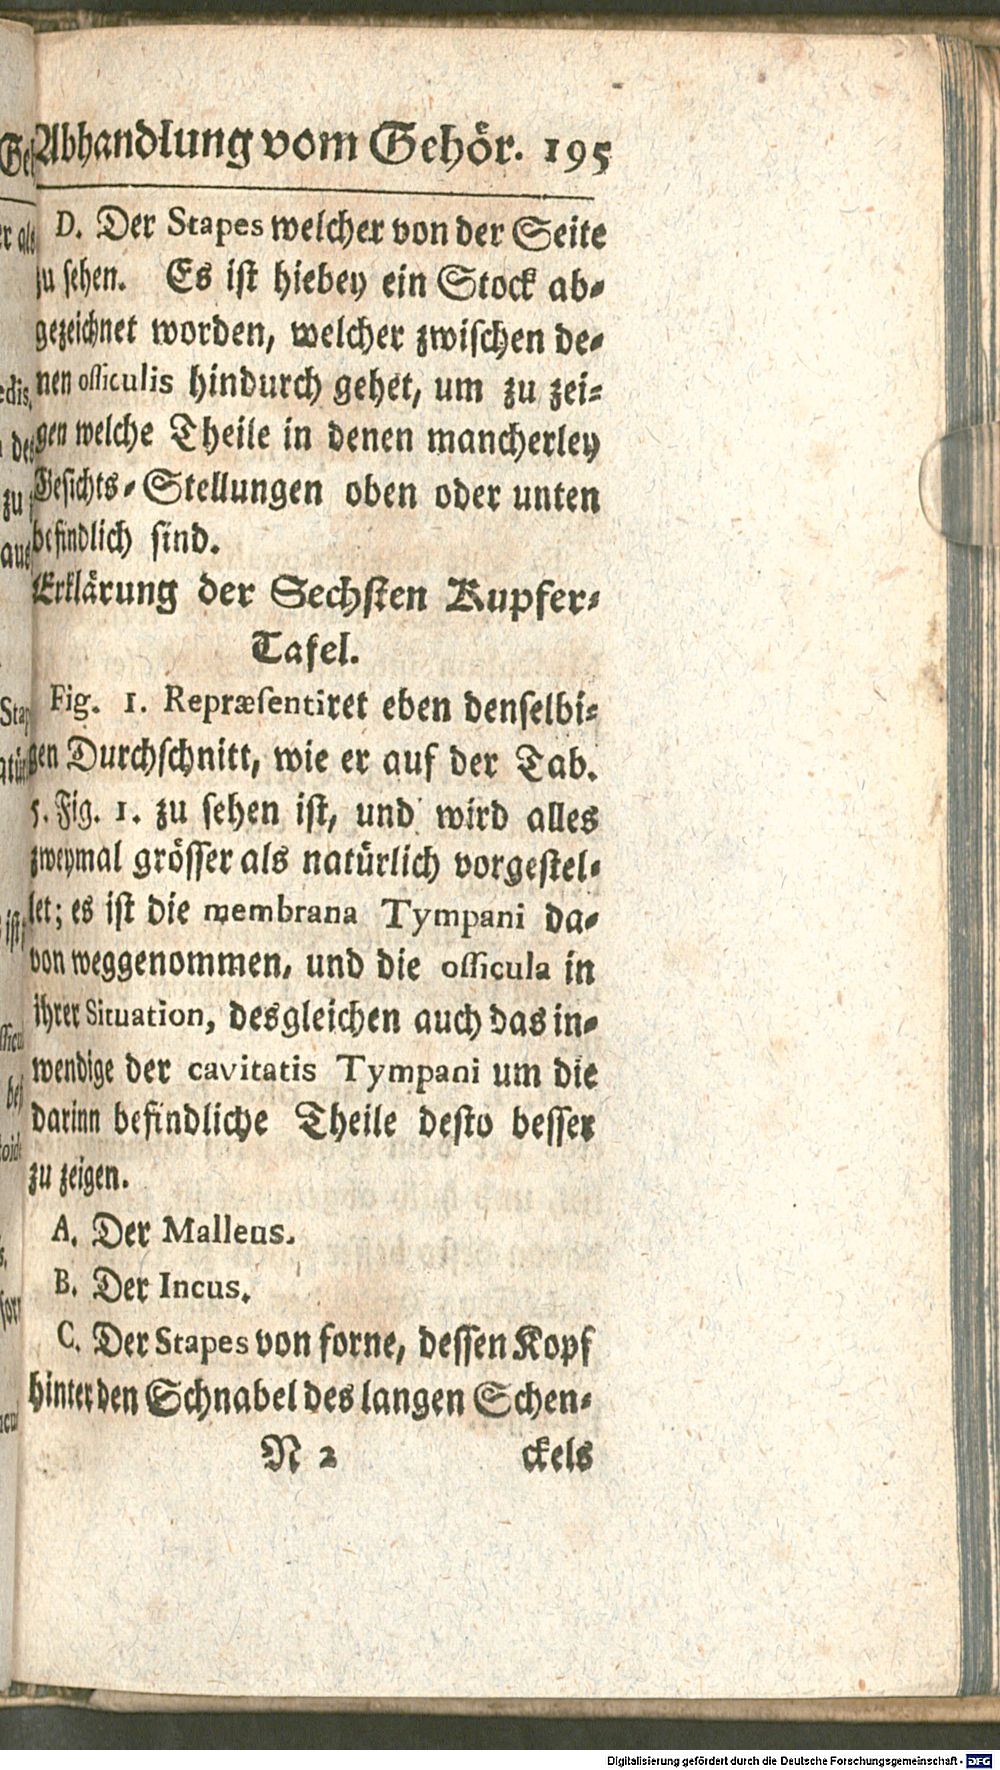 Abhandlung vom Gehör. 195
D. Der Stapes welcher von der Seite
zu sehen. Es ist hiebey ein Stock ab-
gezeichnet worden, welcher zwischen de-
nen ossiculis hindurch gehet, um zu zei-
gen welche Theile in denen mancherley
Gesichts-Stellungen oben oder unten
befindlich sind.
Erklärung der Sechsten Kupfer-
Tafel.
Fig. 1. Repræsentiret eben denselbi-
gen Durchschnitt, wie er auf der Tab.
5. Fig. 1. zu sehen ist, und wird alles
zweymal grösser als natürlich vorgestel-
let; es ist die membrana Tympani da-
von weggenommen, und die ossicula in
ihrer Situation, desgleichen auch das in-
wendige der cavitatis Tympani um die
darinn befindliche Theile desto besser
zu zeigen.
A. Der Malleus.
B. Der Incus.
C. Der Stapes von forne, dessen Kopf
hinter den Schnabel des langen Schen-
N 2 ckels
Digitalisierung gefördert durch die Deutsche Forschungsgemeinschaft - DFG